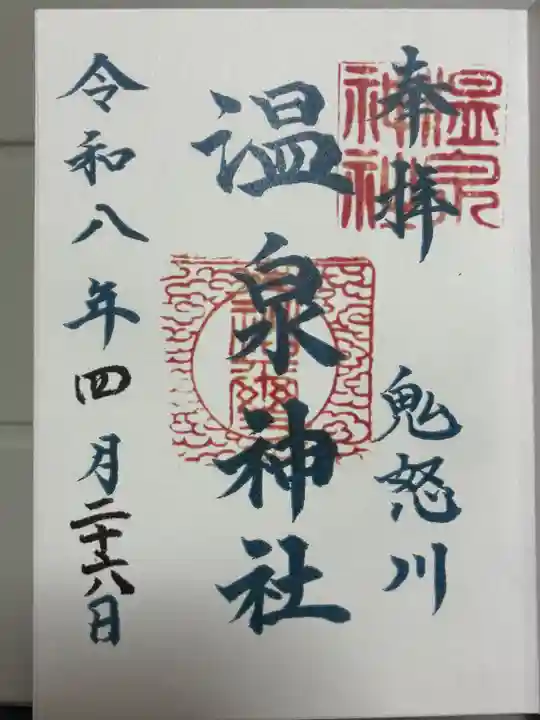 奉拝 鬼怒川
温泉神社
令和八年四月二十六日
温泉
神社